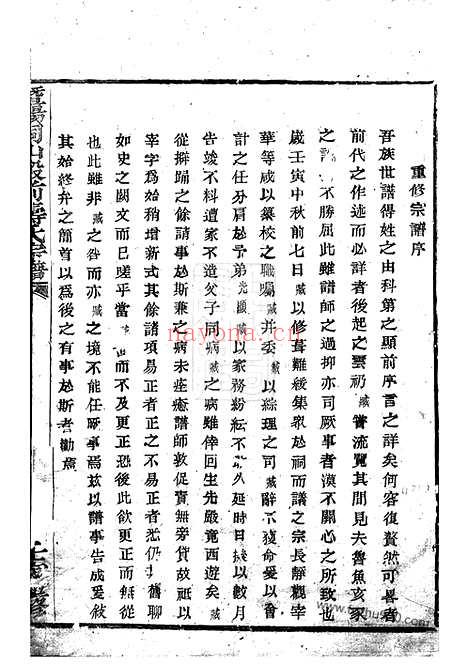 重修宗譜序
吾族世譜得姓之由科第之顯前序言之詳矣何容復贅然可異者
前代之作遺而必詳者後起之雲礽臧嘗流覽其間見夫魯魚亥豕
之不勝屈此雖譜師之過抑亦司厥事者漠不關心之所致也
歲壬寅中秋前七日臧以修葺難緩集眾於祠而議之宗長靜觀宰
華等咸以纂校之職囑臧并委臧以綜理之司臧辭不獲命爰以
計之任分肩於予弟光顯臧以家務紛紜不久延時日擬以數月
告竣不料遭家不造父子同病臧之病雖倖回生先嚴竟西遊矣臧
從擗踊之餘請事於斯兼之病未痊癒譜師敦促責無旁貸故祇以
宰字為始稍增新式其餘諸項易正者正之不易正者悉仍舊聊
如史之闕文而已嗟乎當而不及更正恐後此欲更正而無從
也此雖非臧之咎而亦臧之境不能任厥事焉茲以譜事告成爰敘
其始終弁之簡首以為後之有事於斯者勸焉
暨陽同山段前壽氏宗譜
nayona.cn